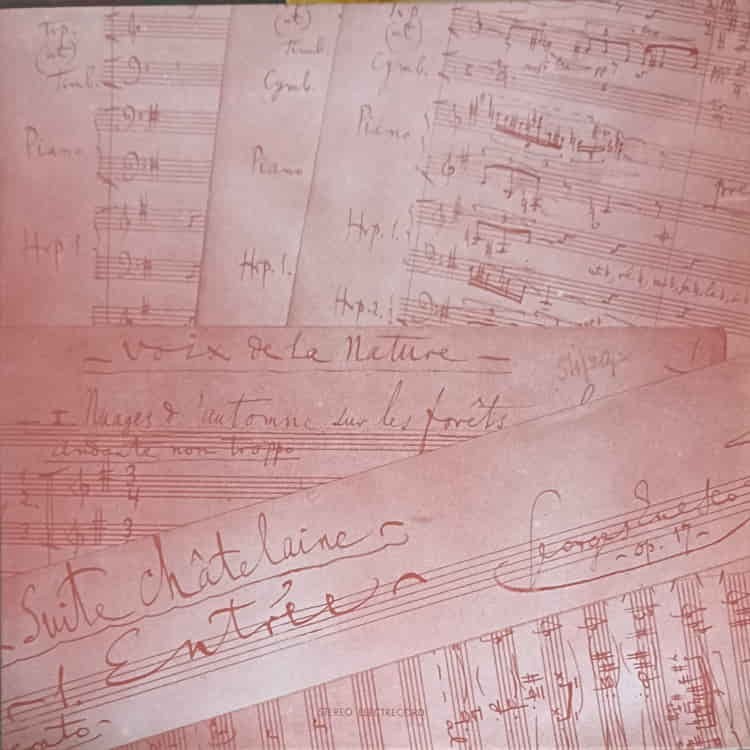 Trp.
(ut)
Timb.
Piano
Hrp 1
(ut)
Timb
Cymb.
Piano
Hrp. 1.
Trp.
(ut)
Cymb.
Piano
Hrp. 1.
Hrp. 2.
– Voix de la Nature –
– I. Nuages d'automne sur les forêts
andante non troppo
3
4
3
Suite châtelaine
Georges Enesco
– op. 17 –
– 1. Entrée –
STEREO ELECTRECORD